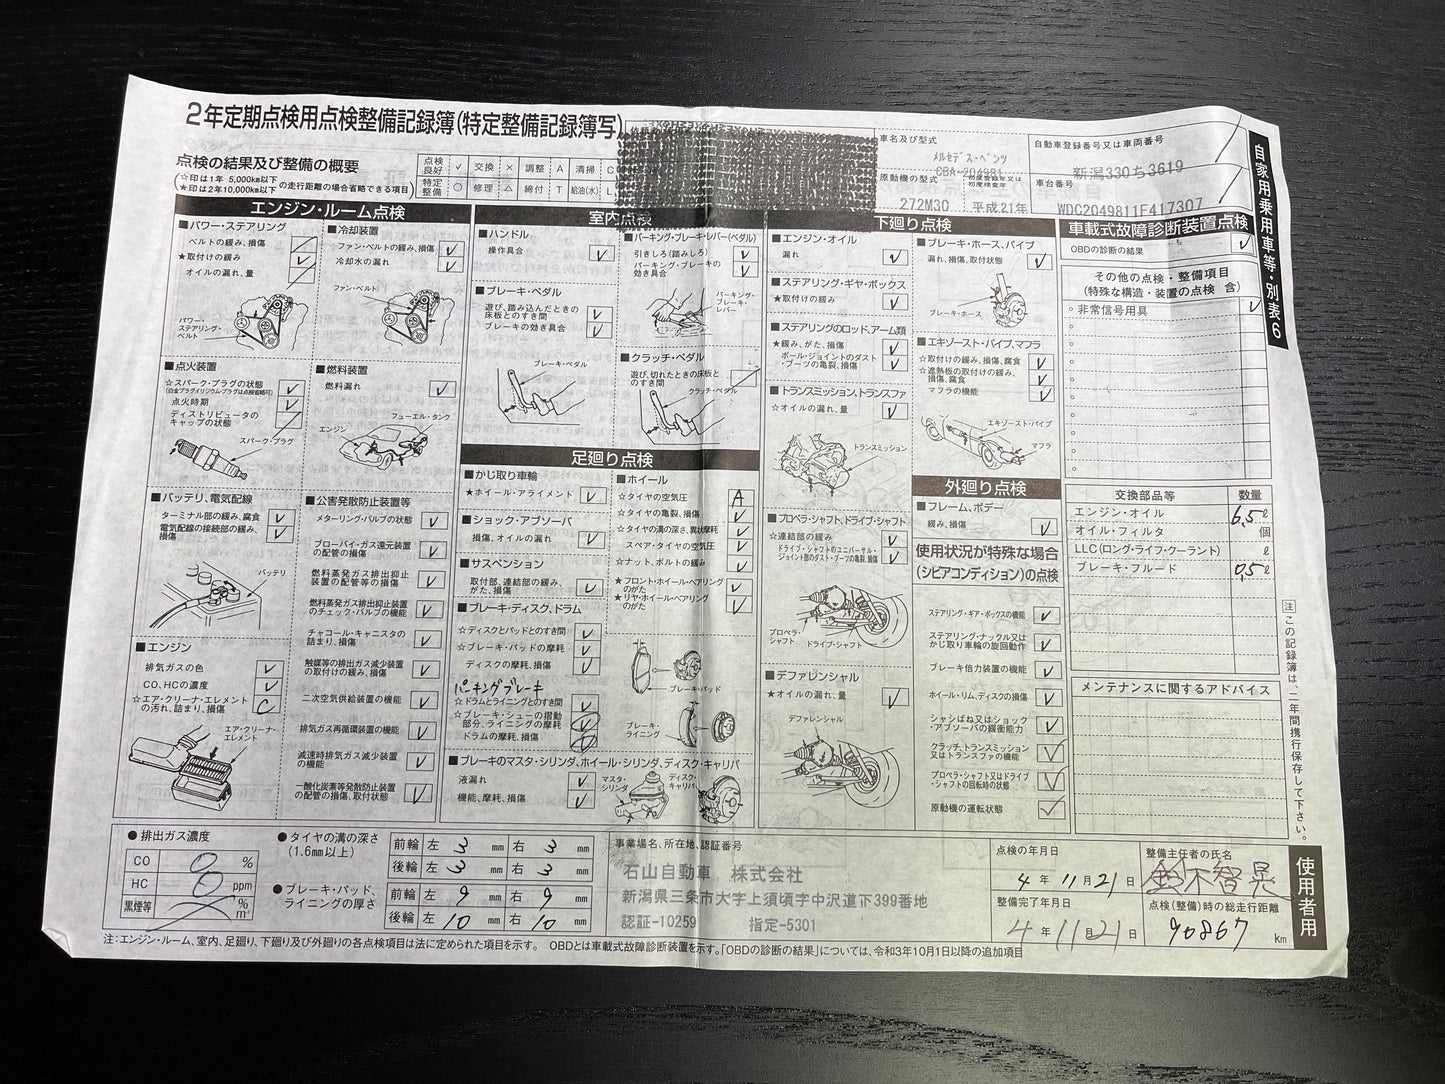 2年定期点検用点検整備記録簿(特定整備記録簿写)
点検の結果及び整備の概要
(☆印は1年 5,000km以下
★印は2年10,000km以下 の走行距離の場合省略できる項目)
点検良好 ✓ 交換 × 調整 A 清掃 C
特定整備 ○ 修理 △ 締付 T 給油(水) L
車名及び型式
メルセデス・ベンツ
CBA-204981
原動機の型式
272M30
初度登録年又は初度検査年
平成21年
自動車登録番号又は車両番号
新潟330ち3619
車台番号
WDC2049811F417307
自家用乗用車等・別表6
エンジン・ルーム点検
■パワー・ステアリング
ベルトの緩み、損傷
★取付けの緩み ✓
オイルの漏れ、量
パワー・ステアリング・ベルト
■点火装置
☆スパーク・プラグの状態 ✓
(白金プラグ/イリジウム・プラグは点検省略可)
点火時期 ✓
ディストリビュータのキャップの状態
スパーク・プラグ
■バッテリ、電気配線
ターミナル部の緩み、腐食 ✓
電気配線の接続部の緩み、損傷 ✓
バッテリ
■エンジン
排気ガスの色 ✓
CO、HCの濃度 ✓
☆エア・クリーナ・エレメントの汚れ、詰まり、損傷 C
エア・クリーナ・エレメント
■冷却装置
ファン・ベルトの緩み、損傷 ✓
冷却水の漏れ ✓
ファン・ベルト
■燃料装置
燃料漏れ ✓
フューエル・タンク
エンジン
■公害発散防止装置等
メターリング・バルブの状態 ✓
ブローバイ・ガス還元装置の配管の損傷 ✓
燃料蒸発ガス排出抑止装置の配管等の損傷 ✓
燃料蒸発ガス排出抑止装置のチェック・バルブの機能 ✓
チャコール・キャニスタの詰まり、損傷 ✓
触媒等の排出ガス減少装置の取付けの緩み、損傷 ✓
二次空気供給装置の機能 ✓
排気ガス再循環装置の機能 ✓
減速時排気ガス減少装置の機能 ✓
一酸化炭素等発散防止装置の配管の損傷、取付状態 ✓
室内点検
■ハンドル
操作具合 ✓
■ブレーキ・ペダル
遊び、踏み込んだときの床板とのすき間 ✓
ブレーキの効き具合 ✓
ブレーキ・ペダル
■パーキング・ブレーキ・レバー(ペダル)
引きしろ(踏みしろ) ✓
パーキング・ブレーキの効き具合 ✓
パーキング・ブレーキ・レバー
■クラッチ・ペダル
遊び、切れたときの床板とのすき間
クラッチ・ペダル
足廻り点検
■かじ取り車輪
★ホイール・アライメント ✓
■ショック・アブソーバ
損傷、オイルの漏れ ✓
■サスペンション
取付部、連結部の緩み、がた、損傷 ✓
■ブレーキ・ディスク、ドラム
☆ディスクとパッドとのすき間 ✓
☆ブレーキ・パッドの摩耗 ✓
ディスクの摩耗、損傷 ✓
パーキングブレーキ
☆ドラムとライニングとのすき間 ✓
☆ブレーキ・シューの摺動部分、ライニングの摩耗
ドラムの摩耗、損傷
■ホイール
☆タイヤの空気圧 A
☆タイヤの亀裂、損傷 ✓
☆タイヤの溝の深さ、異状摩耗 ✓
スペア・タイヤの空気圧 ✓
☆ナット、ボルトの緩み ✓
★フロント・ホイール・ベアリングのがた ✓
★リヤ・ホイール・ベアリングのがた ✓
ブレーキ・パッド
ブレーキ・ライニング
■ブレーキのマスタ・シリンダ、ホイール・シリンダ、ディスク・キャリパ
液漏れ ✓
機能、摩耗、損傷 ✓
マスタ・シリンダ
ディスク・キャリパ
下廻り点検
■エンジン・オイル
漏れ ✓
■ステアリング・ギヤ・ボックス
★取付けの緩み ✓
■ステアリングのロッド、アーム類
★緩み、がた、損傷 ✓
ボール・ジョイントのダスト・ブーツの亀裂、損傷 ✓
■トランスミッション、トランスファ
☆オイルの漏れ、量 ✓
トランスミッション
■プロペラ・シャフト、ドライブ・シャフト
☆連結部の緩み ✓
ドライブ・シャフトのユニバーサル・ジョイント部のダスト・ブーツの亀裂、損傷 ✓
プロペラ・シャフト
ドライブ・シャフト
■デファレンシャル
★オイルの漏れ、量 ✓
デファレンシャル
■ブレーキ・ホース、パイプ
漏れ、損傷、取付状態 ✓
ブレーキ・ホース
■エキゾースト・パイプ、マフラ
☆取付けの緩み、損傷、腐食 ✓
☆遮熱板の取付けの緩み、損傷、腐食 ✓
マフラの機能 ✓
エキゾースト・パイプ
マフラ
外廻り点検
■フレーム、ボデー
緩み、損傷 ✓
使用状況が特殊な場合
(シビアコンディション)の点検
ステアリング・ギア・ボックスの機能 ✓
ステアリング・ナックル又はかじ取り車輪の旋回動作 ✓
ブレーキ倍力装置の機能 ✓
ホイール・リム、ディスクの損傷 ✓
シャシばね又はショック・アブソーバの緩衝能力 ✓
クラッチ、トランスミッション又はトランスファの機能 ✓
プロペラ・シャフト又はドライブ・シャフトの回転時の状態 ✓
原動機の運転状態 ✓
車載式故障診断装置点検
OBDの診断の結果 ✓
その他の点検・整備項目
(特殊な構造・装置の点検 含)
○ 非常信号用具 ✓
交換部品等 数量
エンジン・オイル 6.5ℓ
オイル・フィルタ 個
LLC(ロング・ライフ・クーラント) ℓ
ブレーキ・フルード 0.5ℓ
メンテナンスに関するアドバイス
注 この記録簿は、二年間携行保存して下さい。
● 排出ガス濃度
CO 0 %
HC 0 ppm
黒煙等 % m⁻¹
● タイヤの溝の深さ
(1.6mm以上)
前輪 左 3 mm 右 3 mm
後輪 左 3 mm 右 3 mm
● ブレーキ・パッド、ライニングの厚さ
前輪 左 9 mm 右 9 mm
後輪 左 10 mm 右 10 mm
事業場名、所在地、認証番号
石山自動車 株式会社
新潟県三条市大字上須頃字中沢道下399番地
認証-10259 指定-5301
点検の年月日
4 年 11 月 21 日
整備完了年月日
4 年 11 月 21 日
整備主任者の氏名
鈴木智晃
点検(整備)時の総走行距離
90867 km
使用者用
注:エンジン・ルーム、室内、足廻り、下廻り及び外廻りの各点検項目は法に定められた項目を示す。 OBDとは車載式故障診断装置を示す。「OBDの診断の結果」については、令和3年10月1日以降の追加項目